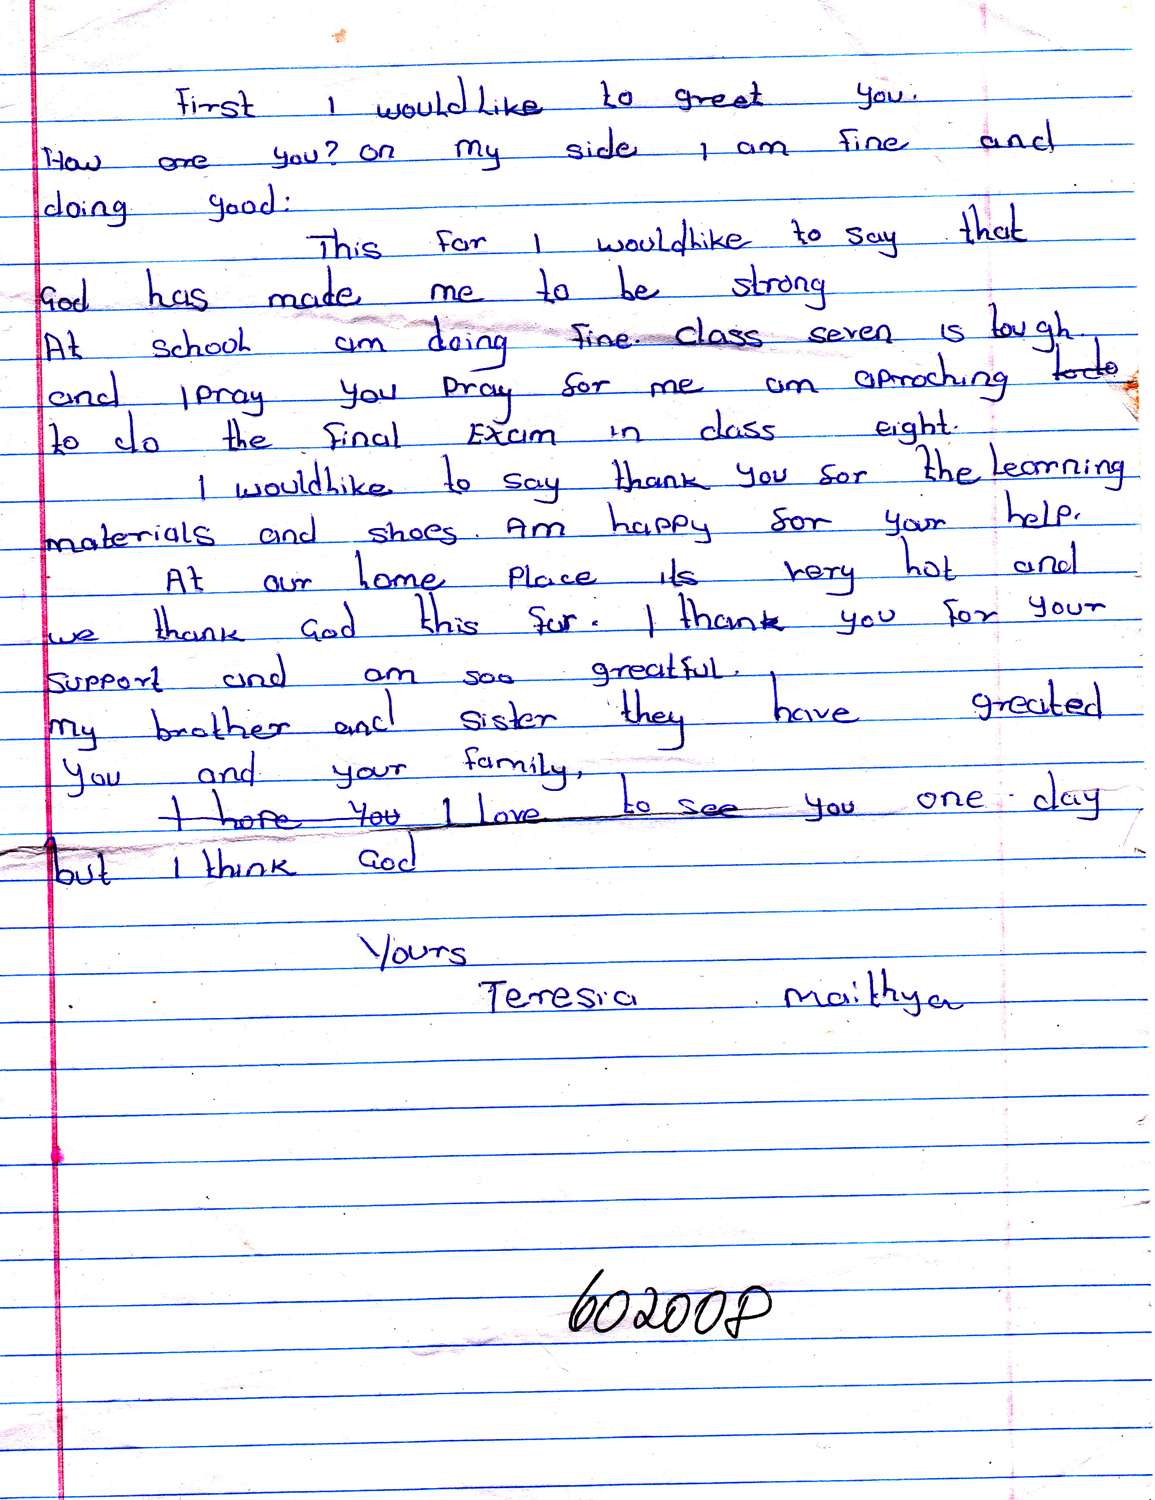 First I wouldLike to greet you.
How are you? on my side I am fine and
doing good:
This far I wouldLike to say that
God has made me to be strong
At school am doing fine. class seven is tough.
and I pray you pray for me am aproching todo
to do the final Exam in class eight.
I wouldLike to say thank you for the Learning
materials and shoes. Am happy for your help.
At our home place its very hot and
we thank God this far. I thank you for your
support and am soo greatful.
My brother and sister they have greated
you and your family,
I hope you I love to see you one day
but I think God
Yours
Teresia Maithya
602008